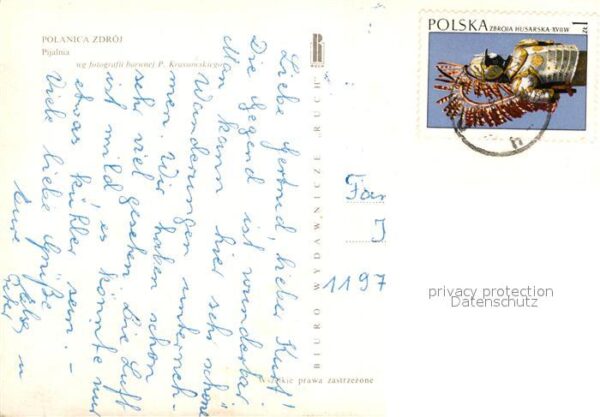 POLANICA ZDRÓJ
Pijalnia
wg fotografii barwnej P. Krassowskiego
Liebe Gertrud, lieber Kurt!
Die Gegend ist wunderbar
Man kann hier sehr schöne
Wanderungen unterneh-
men. Wir haben schon
sehr viel gesehen. Die Luft
ist mild, es könnte nur
etwas kühler sein. -
Viele liebe Grüße
Eure
BIURO WYDAWNICZE "RUCH"
Wszelkie prawa zastrzeżone
POLSKA
ZBROJA HUSARSKA-XVII W
1 zł
Fam
1197
privacy protection
Datenschutz